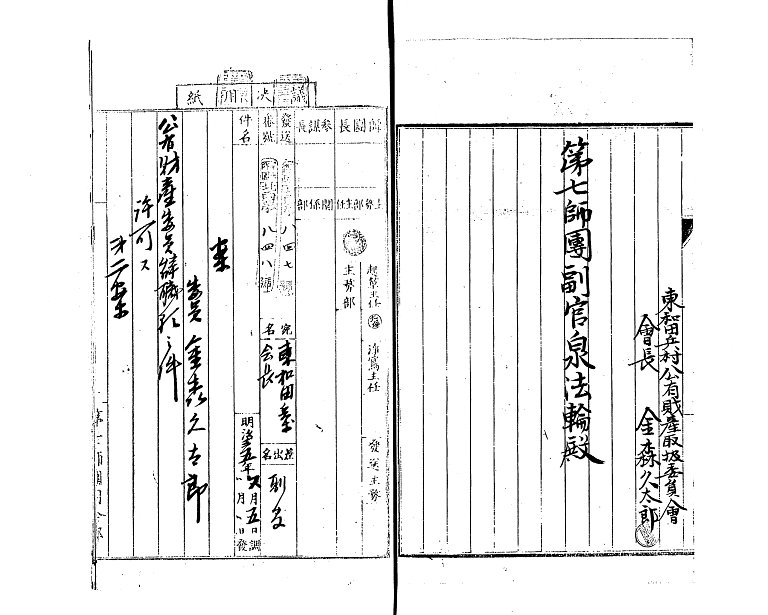 東和田兵村公有財産取扱委員會
會長 金森久太郎
第七師團副官泉法輪殿
議決用紙
師團長
參謀長
主務部主任
關係部
起案主任
淨寫主任
發送主務
主務部
發送
番號
八四七號
八四八號
宛名
東和田兵村
会長
差出名
副官
件名
明治
年六月五日調
月 日發
案
委員 金森久太郎
公有財産委員辞職願ノ件
許可ス
第二案
第七師團司令部